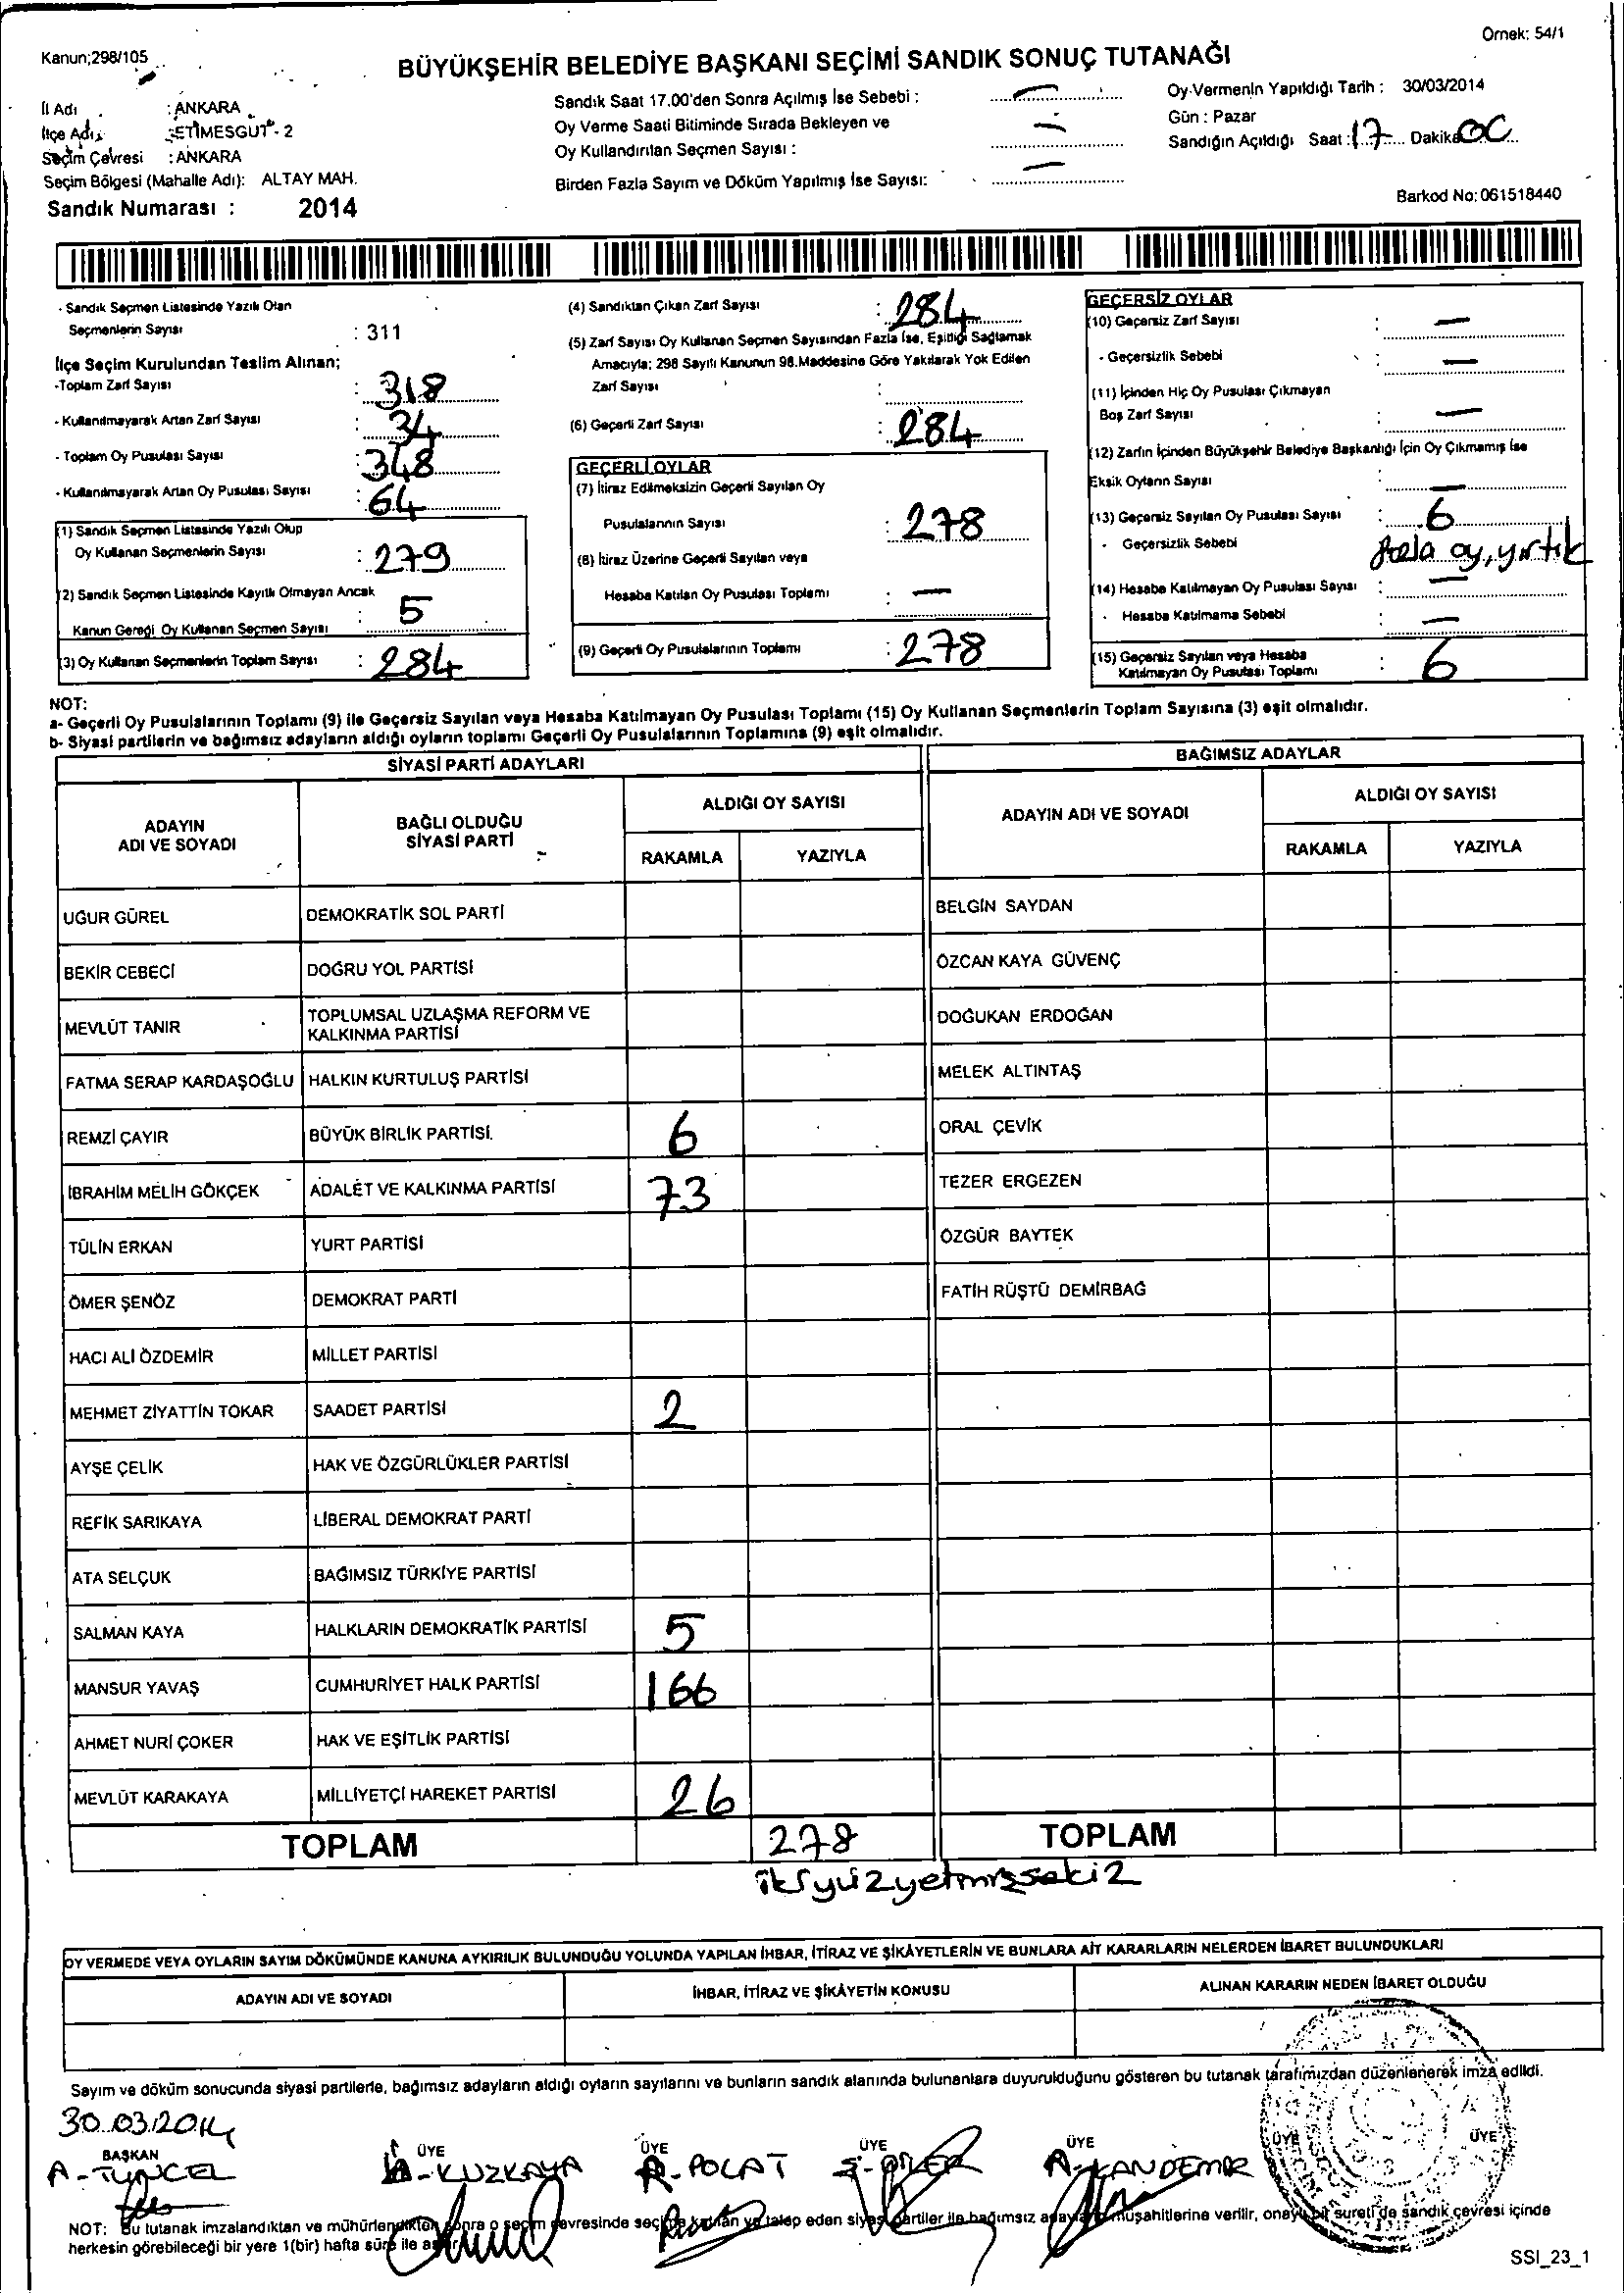 Örnek: 54/1
Kanun;298/105
BÜYÜKŞEHİR BELEDİYE BAŞKANI SEÇİMİ SANDIK SONUÇ TUTANAĞI
İl Adı : ANKARA
İlçe Adı : ETİMESGUT - 2
Seçim Çevresi : ANKARA
Seçim Bölgesi (Mahalle Adı): ALTAY MAH.
Sandık Numarası : 2014
Sandık Saat 17.00'den Sonra Açılmış İse Sebebi : —
Oy Verme Saati Bitiminde Sırada Bekleyen ve
Oy Kullandırılan Seçmen Sayısı : —
Birden Fazla Sayım ve Döküm Yapılmış İse Sayısı: —
Oy Vermenin Yapıldığı Tarih : 30/03/2014
Gün : Pazar
Sandığın Açıldığı Saat : 17 Dakika 00
Barkod No: 061518440
- Sandık Seçmen Listesinde Yazılı Olan
Seçmenlerin Sayısı : 311
İlçe Seçim Kurulundan Teslim Alınan;
-Toplam Zarf Sayısı : 318
- Kullanılmayarak Artan Zarf Sayısı : 34
- Toplam Oy Pusulası Sayısı : 348
- Kullanılmayarak Artan Oy Pusulası Sayısı : 64
(1) Sandık Seçmen Listesinde Yazılı Olup
Oy Kullanan Seçmenlerin Sayısı : 279
(2) Sandık Seçmen Listesinde Kayıtlı Olmayan Ancak
Kanun Gereği Oy Kullanan Seçmen Sayısı : 5
(3) Oy Kullanan Seçmenlerin Toplam Sayısı : 284
(4) Sandıktan Çıkan Zarf Sayısı : 284
(5) Zarf Sayısı Oy Kullanan Seçmen Sayısından Fazla İse, Eşitliği Sağlamak
Amacıyla; 298 Sayılı Kanunun 98.Maddesine Göre Yakılarak Yok Edilen
Zarf Sayısı :
(6) Geçerli Zarf Sayısı : 284
GEÇERLİ OYLAR
(7) İtiraz Edilmeksizin Geçerli Sayılan Oy
Pusulalarının Sayısı : 278
(8) İtiraz Üzerine Geçerli Sayılan veya
Hesaba Katılan Oy Pusulası Toplamı : —
(9) Geçerli Oy Pusulalarının Toplamı : 278
GEÇERSİZ OYLAR
(10) Geçersiz Zarf Sayısı : —
- Geçersizlik Sebebi : —
(11) İçinden Hiç Oy Pusulası Çıkmayan
Boş Zarf Sayısı : —
(12) Zarfın İçinden Büyükşehir Belediye Başkanlığı İçin Oy Çıkmamış İse
Eksik Oyların Sayısı : —
(13) Geçersiz Sayılan Oy Pusulası Sayısı : 6
- Geçersizlik Sebebi oy, yırtık
(14) Hesaba Katılmayan Oy Pusulası Sayısı : —
- Hesaba Katılmama Sebebi —
(15) Geçersiz Sayılan veya Hesaba
Katılmayan Oy Pusulası Toplamı : 6
NOT:
a- Geçerli Oy Pusulalarının Toplamı (9) ile Geçersiz Sayılan veya Hesaba Katılmayan Oy Pusulası Toplamı (15) Oy Kullanan Seçmenlerin Toplam Sayısına (3) eşit olmalıdır.
b- Siyasi partilerin ve bağımsız adayların aldığı oyların toplamı Geçerli Oy Pusulalarının Toplamına (9) eşit olmalıdır.
SİYASİ PARTİ ADAYLARI
ADAYIN
ADI VE SOYADI
BAĞLI OLDUĞU
SİYASİ PARTİ
ALDIĞI OY SAYISI
RAKAMLA YAZIYLA
UĞUR GÜREL DEMOKRATİK SOL PARTİ
BEKİR CEBECİ DOĞRU YOL PARTİSİ
MEVLÜT TANIR TOPLUMSAL UZLAŞMA REFORM VE
KALKINMA PARTİSİ
FATMA SERAP KARDAŞOĞLU HALKIN KURTULUŞ PARTİSİ
REMZİ ÇAYIR BÜYÜK BİRLİK PARTİSİ 6
İBRAHİM MELİH GÖKÇEK ADALET VE KALKINMA PARTİSİ 73
TÜLİN ERKAN YURT PARTİSİ
ÖMER ŞENÖZ DEMOKRAT PARTİ
HACI ALİ ÖZDEMİR MİLLET PARTİSİ
MEHMET ZİYATTİN TOKAR SAADET PARTİSİ 2
AYŞE ÇELİK HAK VE ÖZGÜRLÜKLER PARTİSİ
REFİK SARIKAYA LİBERAL DEMOKRAT PARTİ
ATA SELÇUK BAĞIMSIZ TÜRKİYE PARTİSİ
SALMAN KAYA HALKLARIN DEMOKRATİK PARTİSİ 5
MANSUR YAVAŞ CUMHURİYET HALK PARTİSİ 166
AHMET NURİ ÇOKER HAK VE EŞİTLİK PARTİSİ
MEVLÜT KARAKAYA MİLLİYETÇİ HAREKET PARTİSİ 26
TOPLAM 278
ikiyüzyetmişsekiz
BAĞIMSIZ ADAYLAR
ADAYIN ADI VE SOYADI
ALDIĞI OY SAYISI
RAKAMLA YAZIYLA
BELGİN SAYDAN
ÖZCAN KAYA GÜVENÇ
DOĞUKAN ERDOĞAN
MELEK ALTINTAŞ
ORAL ÇEVİK
TEZER ERGEZEN
ÖZGÜR BAYTEK
FATİH RÜŞTÜ DEMİRBAĞ
TOPLAM
OY VERMEDE VEYA OYLARIN SAYIM DÖKÜMÜNDE KANUNA AYKIRILIK BULUNDUĞU YOLUNDA YAPILAN İHBAR, İTİRAZ VE ŞİKÂYETLERİN VE BUNLARA AİT KARARLARIN NELERDEN İBARET BULUNDUKLARI
ADAYIN ADI VE SOYADI İHBAR, İTİRAZ VE ŞİKÂYETİN KONUSU ALINAN KARARIN NEDEN İBARET OLDUĞU
Sayım ve döküm sonucunda siyasi partilerle, bağımsız adayların aldığı oyların sayılarını ve bunların sandık alanında bulunanlara duyurulduğunu gösteren bu tutanak tarafımızdan düzenlenerek imza edildi.
30.03.2014
BAŞKAN ÜYE ÜYE ÜYE ÜYE ÜYE ÜYE
A-TUNCEL A-KUZKAYA A-POLAT A-KANDEMİR
NOT: Bu tutanak imzalandıktan ve mühürlendikten sonra o seçim çevresinde seçime katılan ve talep eden siyasi partiler ile bağımsız adayların müşahitlerine verilir, onaylı bir sureti de sandık çevresi içinde
herkesin görebileceği bir yere 1(bir) hafta süre ile asılır.
SSI_23_1